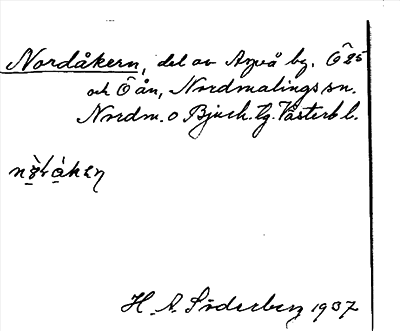 Nordåkern, del av Ava by. Ö 25
och Ö ån, Nordmalings sn.
Nordm. o Bjurh. tg. Västerb l.
H. A. Söderberg 1937